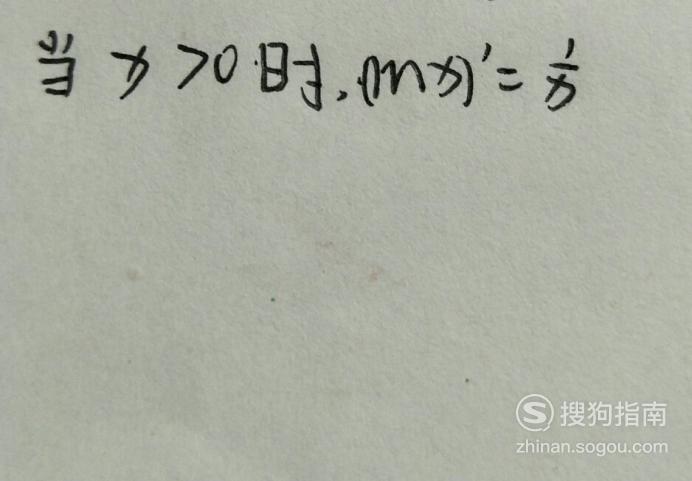 当x>0时,(lnx)'=1/x
搜狗指南
zhinan.sogou.com